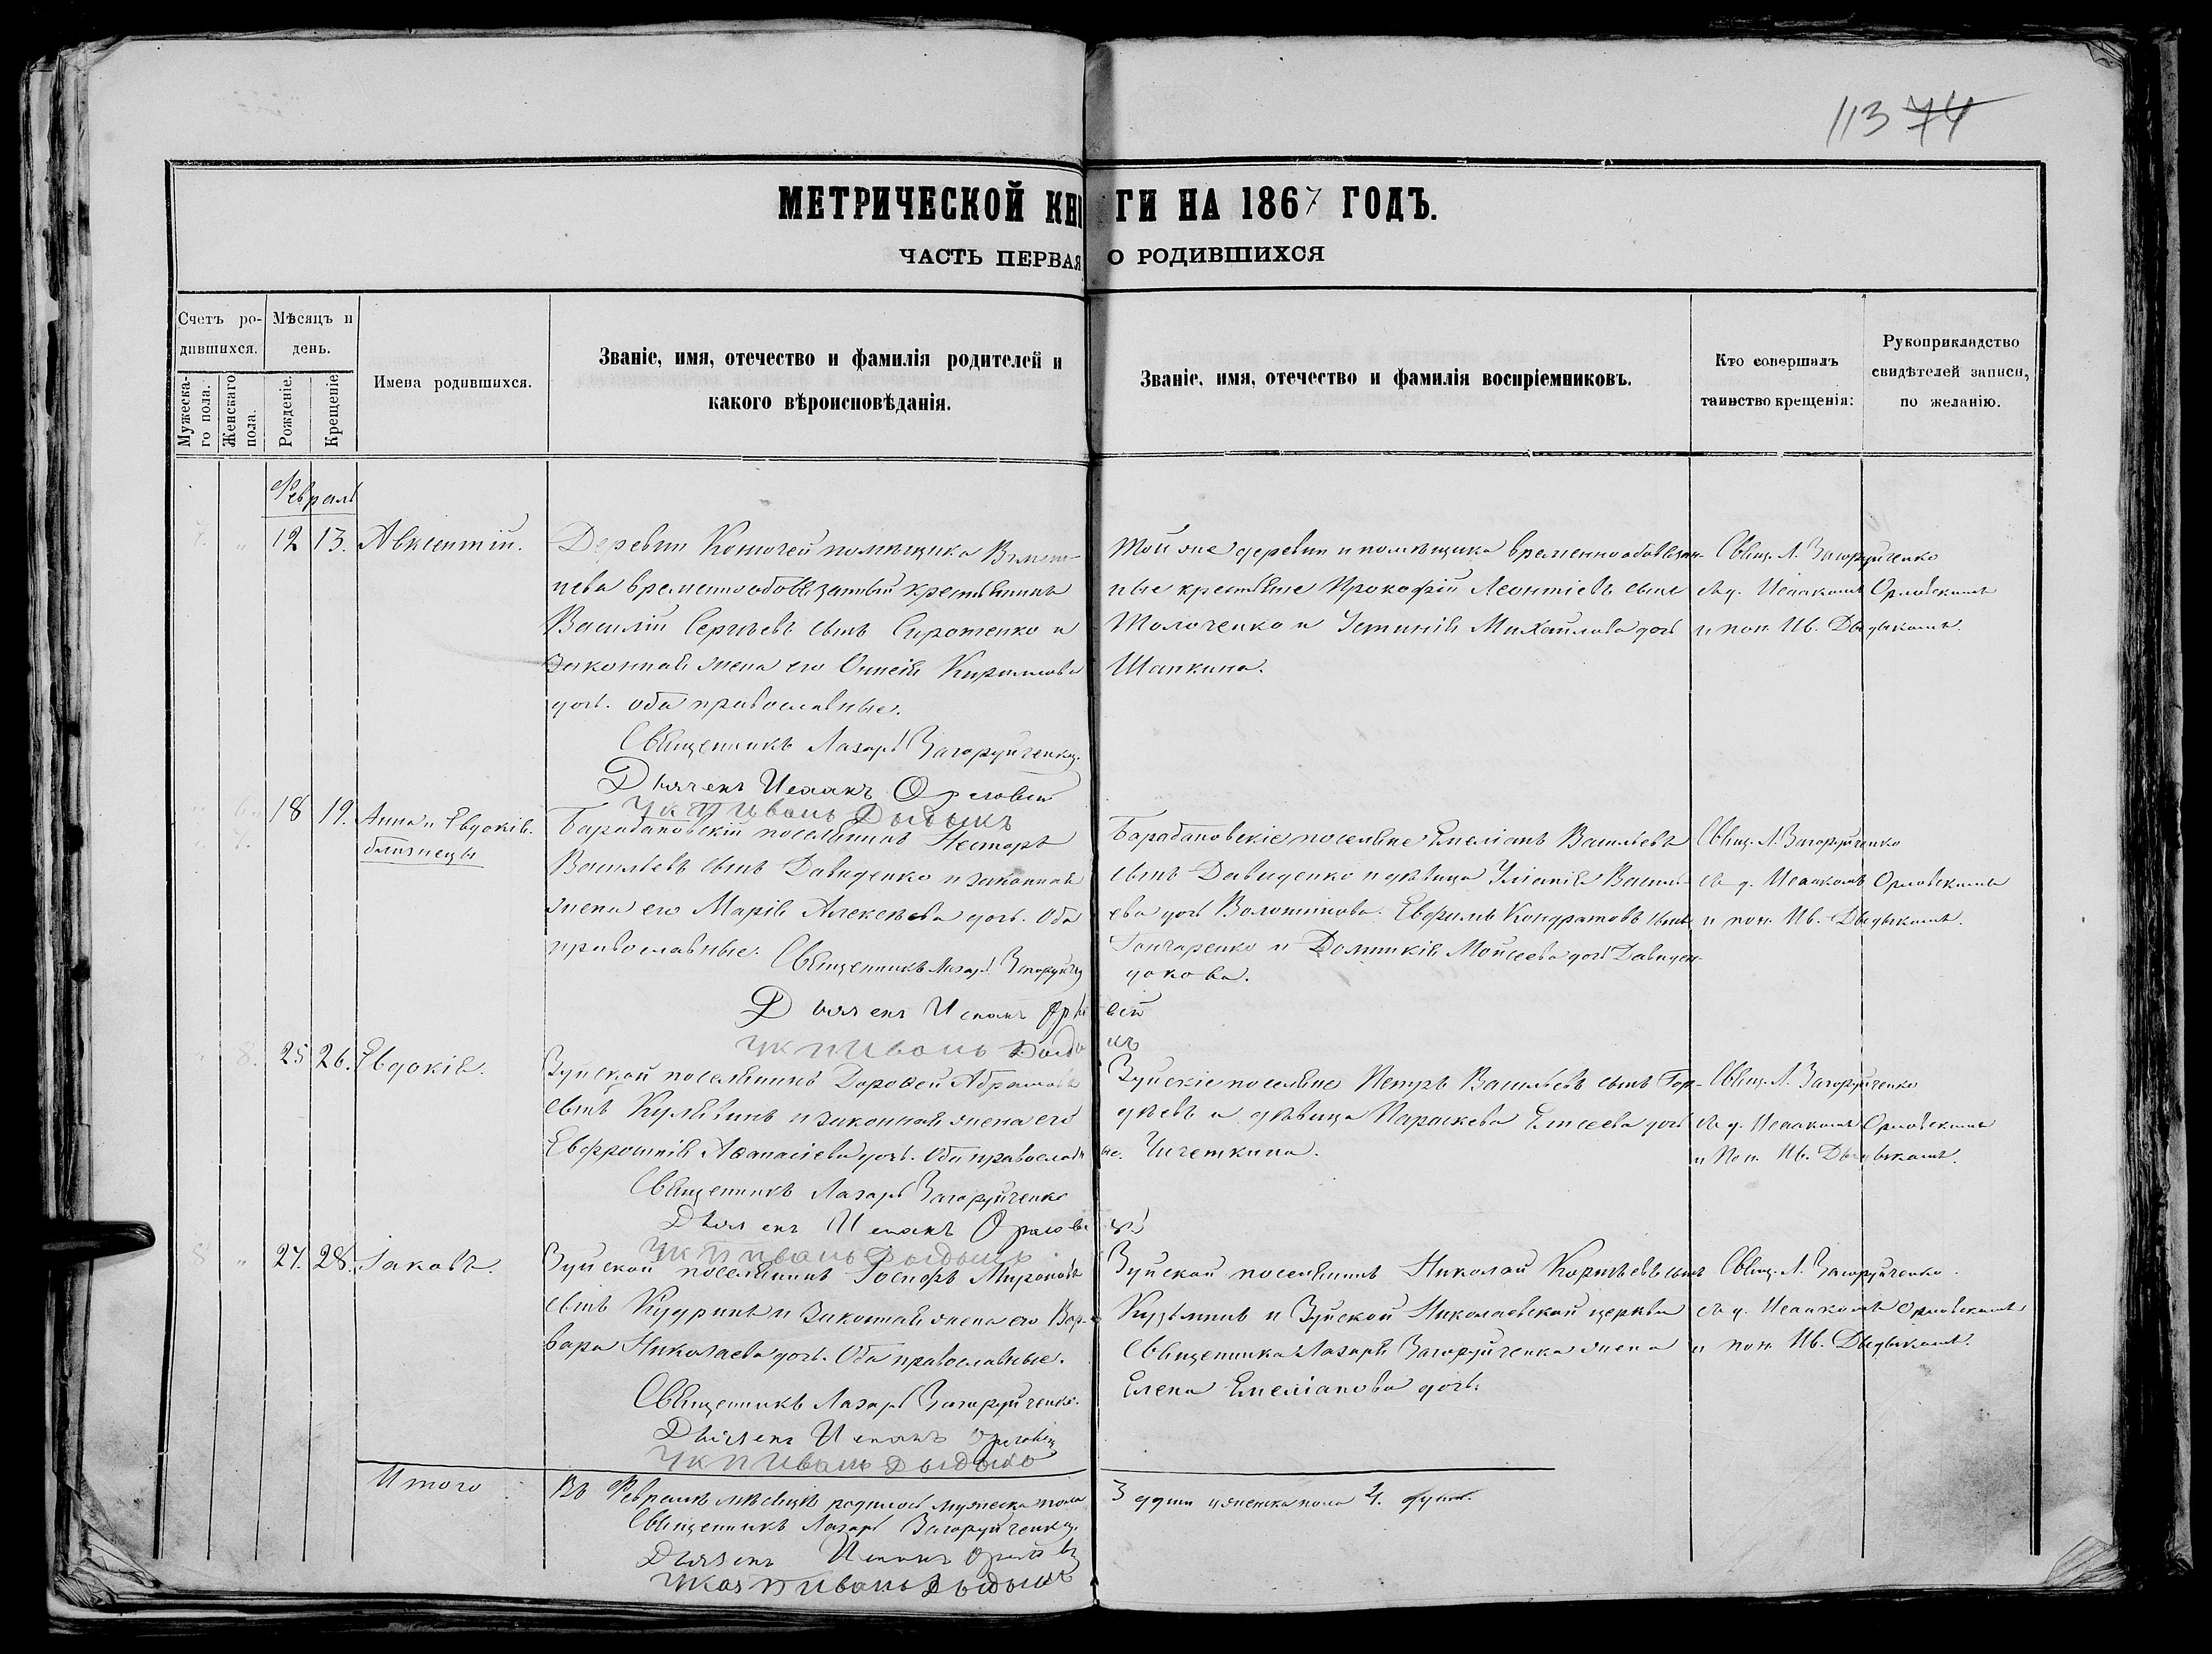 113 74
МЕТРИЧЕСКОЙ КНИГИ НА 1867 ГОДЪ.
ЧАСТЬ ПЕРВАЯ О РОДИВШИХСЯ
Счетъ ро-
дившихся.
Мужеска-
го пола.
Женскаго
пола.
Мѣсяцъ и
день.
Рожденіе.
Крещеніе.
Имена родившихся.
Званіе, имя, отечество и фамилія родителей и
какого вѣроисповѣданія.
Званіе, имя, отечество и фамилія воспріемниковъ.
Кто совершалъ
таинство крещенія:
Рукоприкладство
свидѣтелей записи,
по желанію.
Февраль
7. " 12 13. Авксентій.
Деревни помѣщика
временнообязанный крестьянинъ
Василій Сергѣевъ сынъ Сиротенко и
законная жена его Кирилова
дочь. оба православные.
Священникъ Лазарь Загоруйченко.
Дьячекъ Исаакъ Орловскій
Ук П Иванъ Дыдыкъ
Той же деревни и помѣщика временнообязан-
ные крестьяне Прокофій Леонтіевъ сынъ
Толоченко и Устинія Михайлова дочь
Шапкина.
Свящ. Л. Загоруйченко
съ д. Исаакомъ Орловскимъ
и пон. Ив. Дыдыкомъ.
" 6. 18 19. Анна и Евдокія.
" 7. близнецы
Барабановскій поселянинъ Несторъ
Васильевъ сынъ Давиденко и законная
жена его Марія Алексѣева дочь. Оба
православные. Священникъ Лазарь Загоруйч
Дьячекъ Исаакъ Орловскій
Ук П Иванъ Дыдыкъ
Барабановскіе поселяне Емеліанъ Васильевъ
сынъ Давиденко и дѣвица Уліанія Василь-
ева дочь Волошинова. Евфимъ Кондратовъ сынъ
Гончаренко и Домникія Моисеева дочь Давиден-
кова.
Свящ. Л. Загоруйченко
съ д. Исаакомъ Орловскимъ
и пон. Ив. Дыдыкомъ.
" 8. 25 26. Евдокія.
Зуйской поселянинъ Дорофей Абрамовъ
сынъ Кулявинъ и законная жена его
Евфросинія Афанасіева дочь. Оба православные.
Священникъ Лазарь Загоруйченко
Дьячекъ Исаакъ Орловскій
Ук П Иванъ Дыдыкъ
Зуйскіе поселяне Петръ Васильевъ сынъ Гор-
дѣевъ и дѣвица Параскева Елисеева дочь
Чичеткина.
Свящ. Л. Загоруйченко
съ д. Исаакомъ Орловскимъ
и Пон. Ив. Дыдыкомъ.
8 " 27. 28. Іаковъ.
Зуйской поселянинъ Іосифъ Мироновъ
сынъ Кудринъ и законная жена его Вар-
вара Николаева дочь. Оба православные.
Священникъ Лазарь Загоруйченко.
Дьячекъ Исаакъ Орловскій
Ук П Иванъ Дыдыкъ
Зуйской поселянинъ Николай Корнѣевъ сынъ
Кузьминъ и Зуйской Николаевской церкви
священника Лазаря Загоруйченка жена
Елена Емеліанова дочь.
Свящ. Л. Загоруйченко.
съ д. Исаакомъ Орловскимъ
и пон. Ив. Дыдыкомъ.
Итого
Въ Февралѣ мѣсяцѣ родилось мужеска пола 3 души и женска пола 4. души.
Священникъ Лазарь Загоруйченко.
Дьячекъ Исаакъ Орловскій
Указ П Иванъ Дыдыкъ